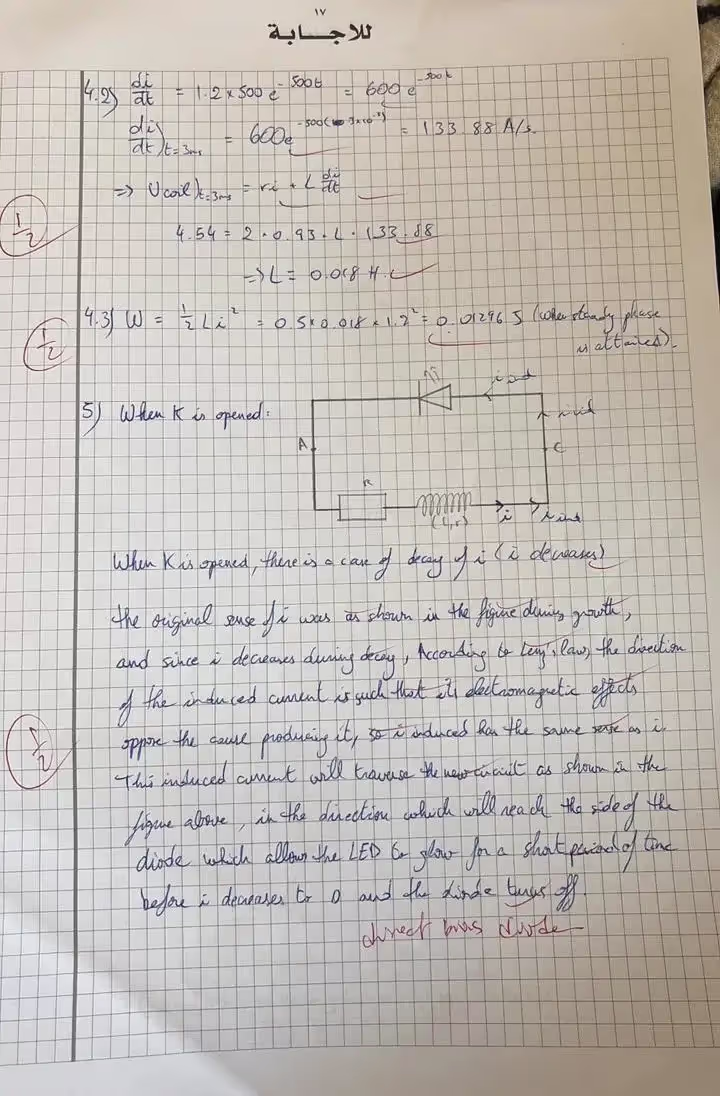 ١٧
للاجــابة
4.2) di/dt = 1.2 × 500 e^-500t = 600 e^-500t
di/dt)t=3ms = 600e^-500(3×10^-3) = 133.88 A/s.
=> Ucoil)t=3ms = ri + L di/dt
1/2
4.54 = 2 · 0.93 + L · 133.88
=> L = 0.018 H.
4.3) W = 1/2 Li² = 0.5 × 0.018 × 1.2² = 0.01296 J (when steady phase
is attained).
1/2
5) When K is opened:
i ind
i ind
A
C
R
(L,r)
i
i ind
When K is opened, there is a case of decay of i (i decreases)
the original sense of i was as shown in the figure during growth,
and since i decreases during decay, According to Lenz's law, the direction
of the induced current is such that its electromagnetic effects
oppose the cause producing it, so i induced has the same sense as i.
This induced current will traverse the new circuit as shown in the
figure above, in the direction which will reach the side of the
diode which allows the LED to glow for a short period of time
before i decreases to 0 and the diode turns off.
1/2
direct bias diode